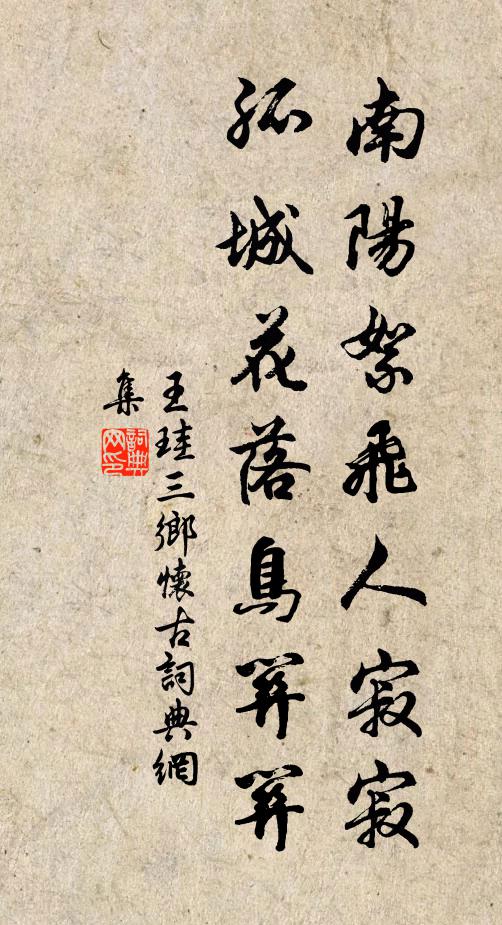 南陽絮飛人寂寂
孤城花落鳥關關
王珪三鄉懷古詞典網
集
詞典
网印